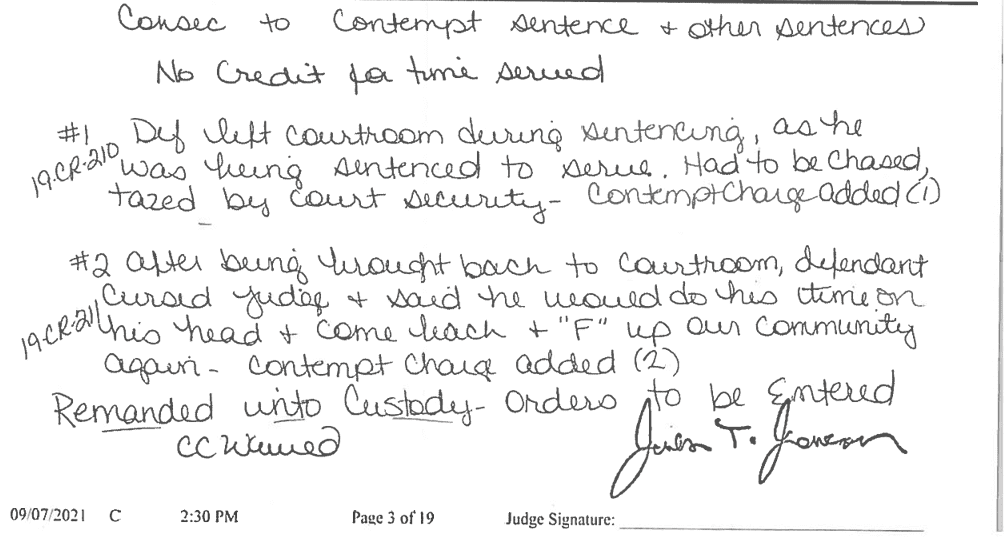 Consec to Contempt sentence + other sentences
No Credit for time served
#1 Def left courtroom during sentencing, as he
19-CR-210 was being sentenced to serve. Had to be chased,
tazed by court security- Contempt Charge added (1)
#2 after being brought back to courtroom, defendant
cursed judge + said he would do his time on
19-CR-211 his head + come back + "F" up our community
again - contempt charge added (2)
Remanded unto Custody- Orders to be Entered
CC Waived
T.
09/07/2021 C 2:30 PM Page 3 of 19 Judge Signature: